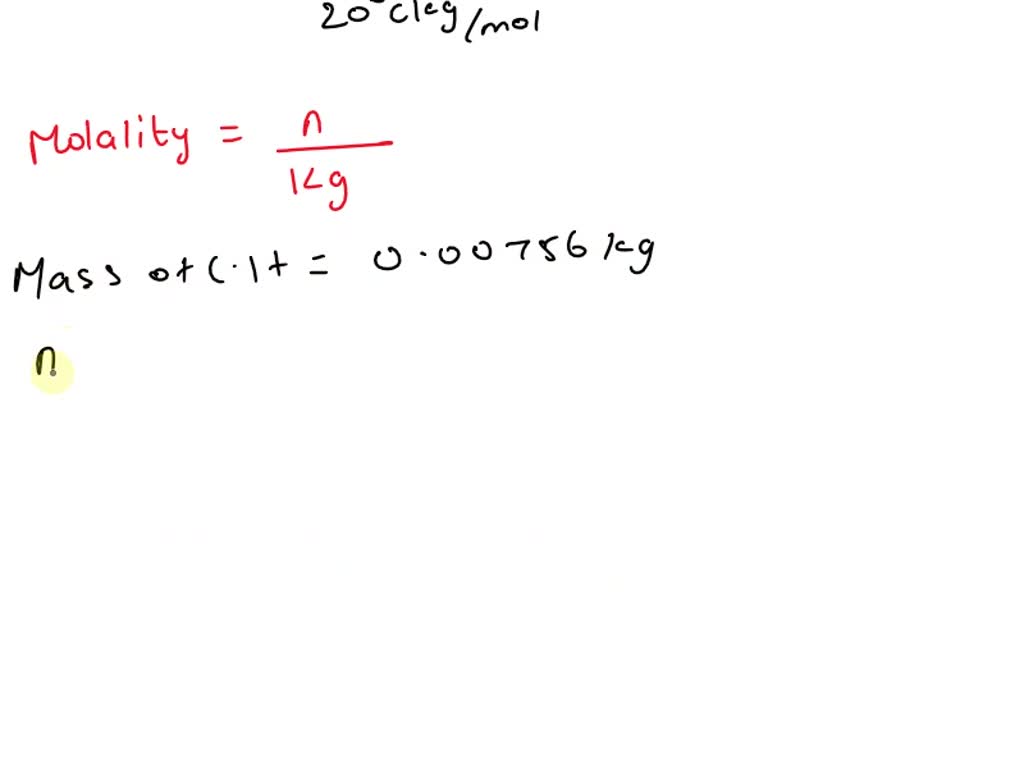 20°C kg/mol
Molality = n
Kg
Mass of C.H = 0.00756 kg
n